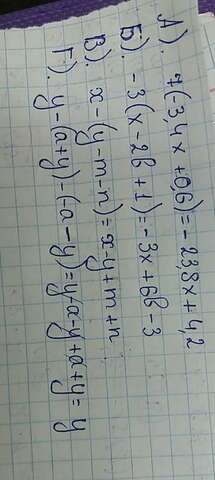 А). 7(-3,4x + 0,6) = -23,8x + 4,2
Б). -3(x - 2b + 1) = -3x + 6b - 3
В). x - (y - m - n) = x - y + m + n
Г). y - (a + y) - (-a - y) = y - a - y + a + y = y